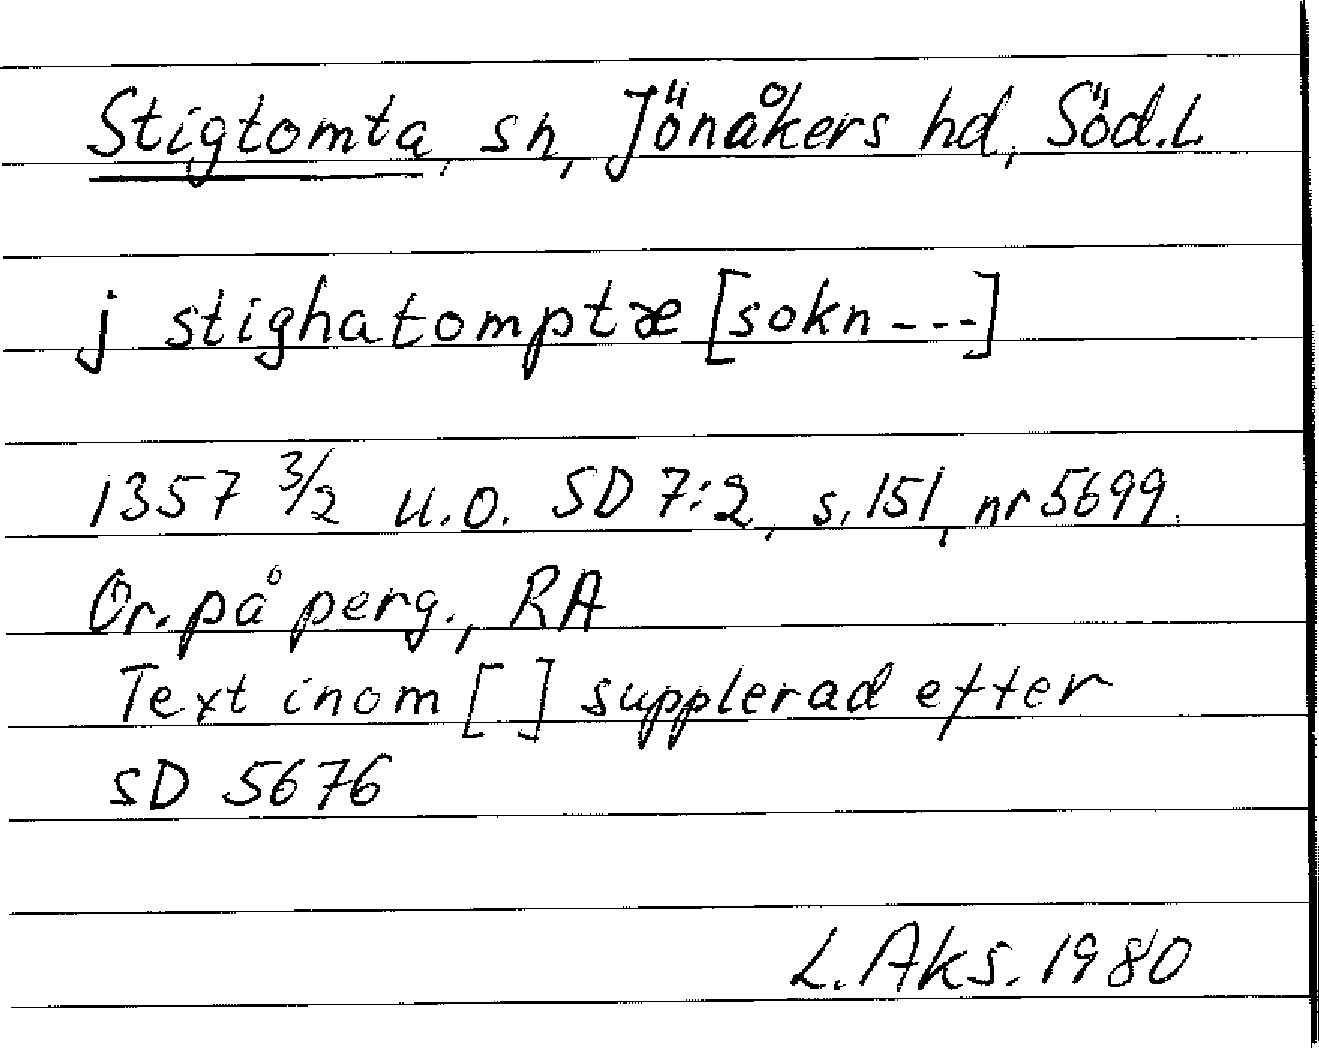 Stigtomta, sn, Jönåkers hd, Söd.L.
j stighatomptæ [sokn ---]
1357 3/2 u.o. SD 7:2, s. 151, nr 5699.
Or. på perg., RA
Text inom [ ] supplerad efter
SD 5676
L. Aks. 1980